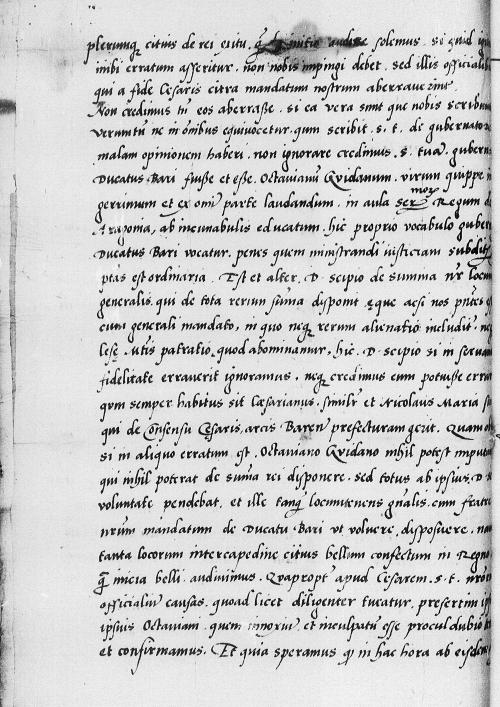 plerunq; citius de rei exitu, q̃ de initio audire solemus. si quid igi
inibi erratum asseritur. non nobis impingi debet. sed illis officialib
qui a fide Cesaris citra mandatum nostrum aberraverint.
Non credimus tñ eos aberrasse. si ea vera sunt que nobis scribun
veruntñ ne in oñibus equivocetur. qum scribit. s. t. de gubernato
malam opinionem haberi. non ignorare credimus. s. tuã. gubern
Ducatus Bari fuisse et esse. Octavianũ Qvidanum. virum quippe in
gerrimum et ex omi parte laudandum. in aula ser.mor Regum d
Aragonia, ab incunabulis educatum. hic proprio vocabulo guber
Ducatus Bari vocatur. penes quem ministrandi iustitiam subdit
ptas est ordinaria. Est et alter. D. scipio de summa nr̃ locum
generalis. qui de tota rerum sũma disponit eque acsi nos pñtes
cum generali mandato, in quo neq; rerum alienatio includit, ne
lesę . utis patratio, quod abominamur, hic. D. scipio si in servan
fidelitate erraverit ignoramus, neq; credimus eum potuisse erra
qum semper habitus sit Cæsarianus. similr̃ et Nicolaus Maria
qui de Consensu Cęsaris, arcis Baren prefecturam gerit. Quam
si in aliquo erratum est, Octaviano Qvidano nihil potest imputa
qui nihil poterat de sũma rei disponere. sed totus ab ipsius. D.
voluntate pendebat, et ille tanq̃ locumtenens gñalis. cum fratru
nrũm mandatum de Ducatu Bari ut voluere, disposuere. nam
tanta locorum intercapedine citius bellum confectum in Regno
q̃ inicia belli audivimus. Qvapropt apud Cesarem. s. t. nr̃oru
officialiũ causas, quoad licet diligenter tueatur, presertim ip
ipsius Octaviani quem innoxiũ et inculpatũ esse procul dubio
et confirmamus. Et quia speramus q̃ in hac hora ab eisdem